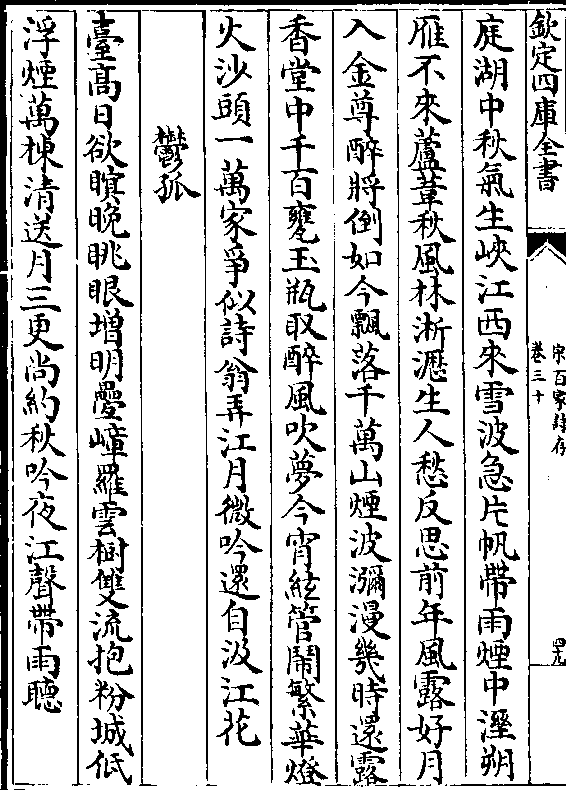 欽定四庫全書
宋百家詩存
卷三十
四九
庭湖中秋氣生峽江西來雪波急片帆帶雨煙中溼朔
雁不來蘆葦秋風林淅瀝生人愁反思前年風露好月
入金尊醉將倒如今飄落千萬山煙波瀰漫幾時還露
香堂中千百甕玉瓶取醉風吹夢今宵絃管鬧繁華燈
火沙頭一萬家爭似詩翁弄江月微吟還自汲江花
鬱孤
臺髙日欲暝晚眺眼增明疊嶂羅雲樹雙流抱粉城低
浮煙萬棟清送月三更尚約秋吟夜江聲帶雨聽